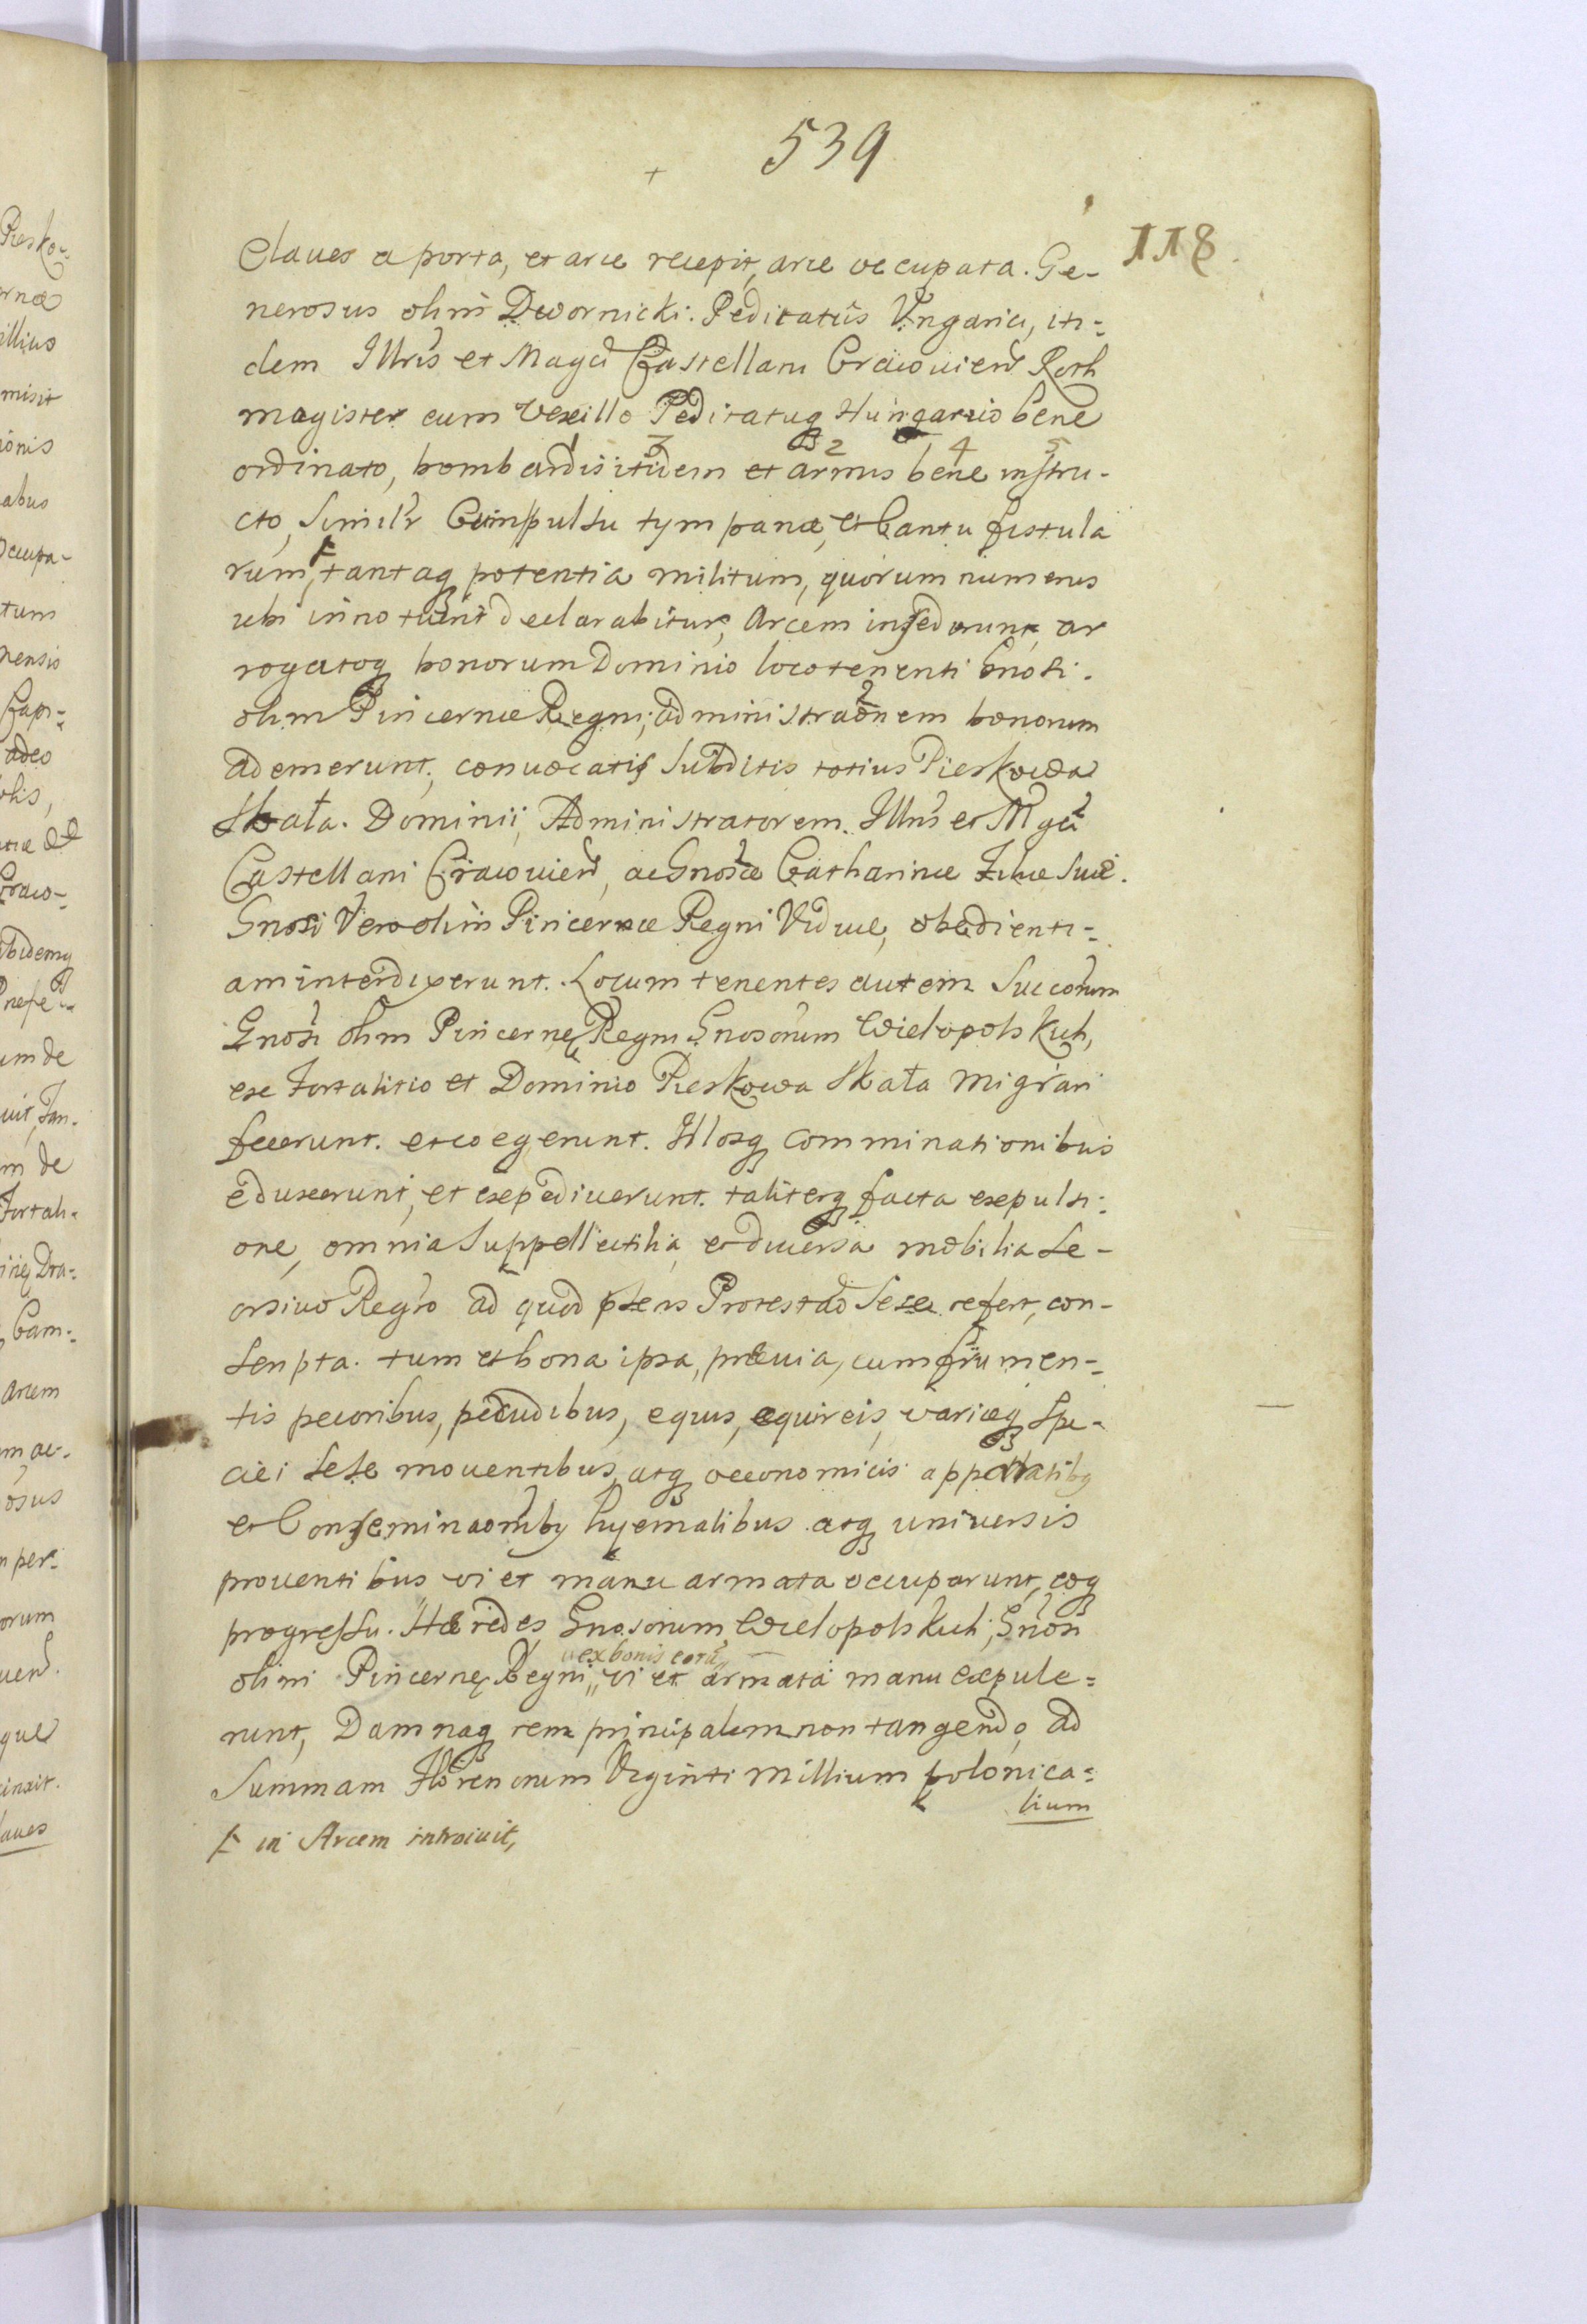 539
118
Claues a porta, et arce recepit, arce occupata. Ge-
nerosus olim Dwornicki. Peditatus Vngarici, iti=
dem Illris et Magci Castellani Cracouien Roth
magister cum Vexillo Peditatuq Hungarico bene
ordinato, bombardis itidem et armis bene instru-
cto, Similr Compulsu tympanæ, et Cantu fistula
rum, tantaq potentia militum, quorum numerus
ubi innotuerit declarabitur, Arcem insederunt, ar
rogatoq bonorum Dominio locotenenti Gnosi.
olim Pincernæ Regni, administraonem bonorum
ademerunt, conuocatis Subditis totius Pieskowa
Skała. Dominii, Administratorem. Illris et Mgci
Castellani Cracouien, ac Gnosæ Catharinæ Filiæ Suæ.
Gnosi Vero olim Pincernæ Regni Viduæ, obedienti=
am interdixerunt. Locum tenentes autem Succorum
Gnosi olim Pincernę Regni Gnosorum Wielopolskich,
ex Fortalitio et Dominio Pieskowa Skała migrari
fecerunt. et coegerunt. Illosq comminationibus
eduxerunt, et expediuerunt. taliterq facta expulsi=
one, omnia Suppellectilia, et diuersa mobilia Se-
orsiuo Regro ad quod pntens Protestao Sese refert, con-
scripta. tum et bona ipsa, præuia, cum frumen=
tis pecoribus, pecudibus, equis, equireis, variæq Spe-
ciei Sese mouentibus, atq oeconomicis appatib9
et Conseminaonib9 hyemalibus atq uniuersis
prouentibus vi et manu armata occuparunt, eoq
progressu. Hæredes Gnosorum Wielopolskich, Gnosi
ex bonis eor
olim Pincernę Regni, vi et armata manu expule=
runt, Damnaq rem principalem non tangendo, ad
Summam Florenorum Viginti Millium polonica=
lium
in Arcem introiuit,